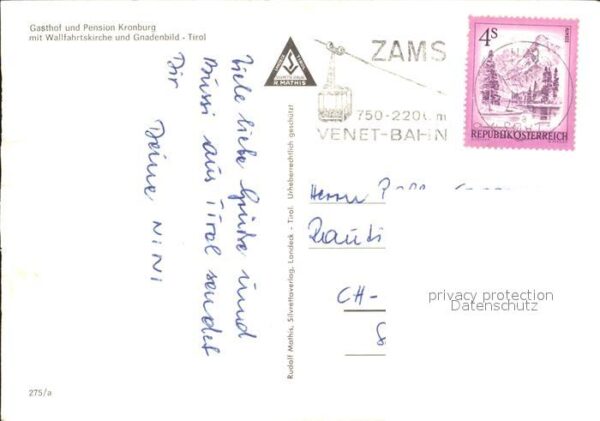 Gasthof und Pension Kronburg
mit Wallfahrtskirche und Gnadenbild - Tirol
Viele liebe Grüße und
Bussi aus Tirol sendet
Dir
Deine NINI
275/a
R. MATHIS
Rudolf Mathis, Silvrettaverlag, Landeck - Tirol. Urheberrechtlich geschützt
ZAMS
750-2200 m
VENET-BAHN
4S
REPUBLIK ÖSTERREICH
Herrn
CH-
8
privacy protection
Datenschutz